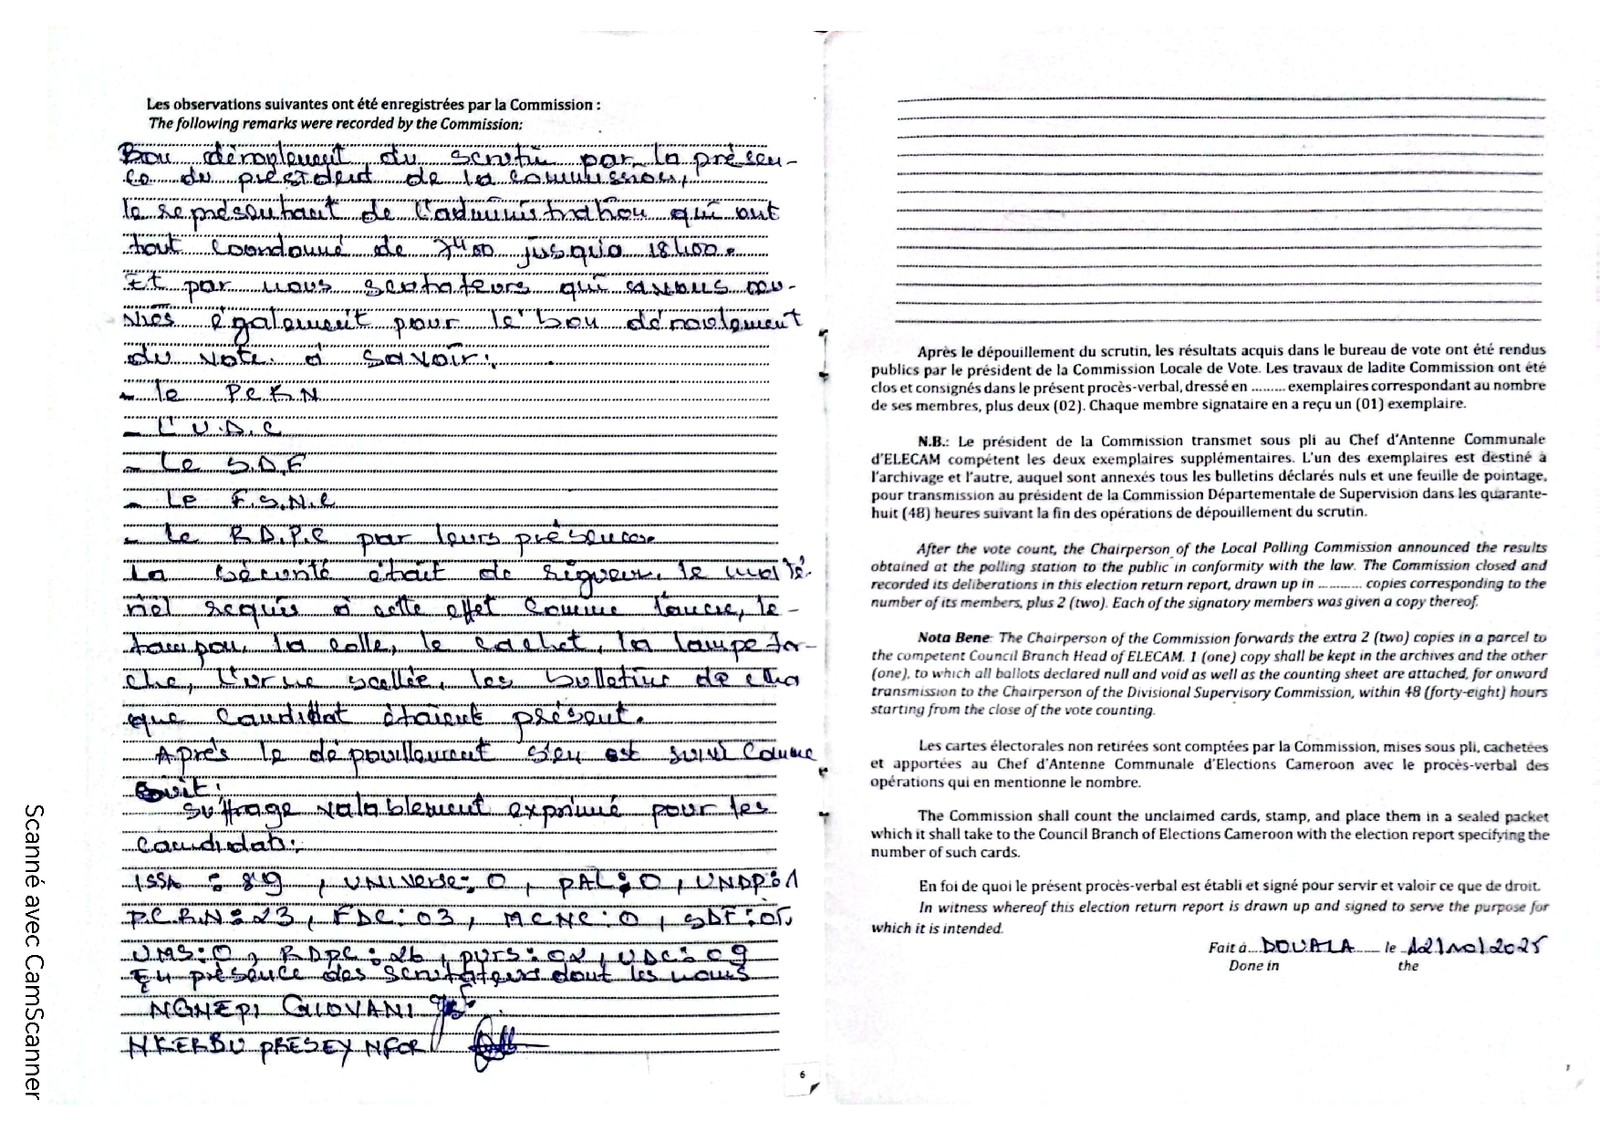 Les observations suivantes ont été enregistrées par la Commission :
The following remarks were recorded by the Commission:
Bon déroulement du scrutin par la présen-
ce du président de la commission,
le représentant de l'administration qui ont
tout coordonné de 7H00 jusqu'à 18H00.
Et par nous scrutateurs qui avons
également pour le bon déroulement
du vote à savoir:
- le PCRN
- L'U.D.C
- Le S.D.F
- Le F.S.N.C
- Le R.D.P.C par leurs présence.
La sécurité était de rigueur, le maté-
riel requis à cette effet comme l'ancre, le
tampon, la colle, le cachet, la lampe tor-
che, l'urne scellée, les bulletins de cha
que candidat étaient présent.
Après le dépouillement s'en est suivi comme
suit:
Suffrage valablement exprimé pour les
candidats:
ISSA : 89, UNIVERSE: 0, PAL: 0, UNDP: 1
P.C.R.N: 23, FDC: 03, MCNC: 0, SDF: 05,
UMS: 0, RDPC: 26, PURS: 02, UDC: 09
En présence des scrutateurs dont les noms
NGHEPI GIOVANI
NKERBU PRESEY NFOR
6
Après le dépouillement du scrutin, les résultats acquis dans le bureau de vote ont été rendus
publics par le président de la Commission Locale de Vote. Les travaux de ladite Commission ont été
clos et consignés dans le présent procès-verbal, dressé en ......... exemplaires correspondant au nombre
de ses membres, plus deux (02). Chaque membre signataire en a reçu un (01) exemplaire.
N.B.: Le président de la Commission transmet sous pli au Chef d'Antenne Communale
d'ELECAM compétent les deux exemplaires supplémentaires. L'un des exemplaires est destiné à
l'archivage et l'autre, auquel sont annexés tous les bulletins déclarés nuls et une feuille de pointage,
pour transmission au président de la Commission Départementale de Supervision dans les quarante-
huit (48) heures suivant la fin des opérations de dépouillement du scrutin.
After the vote count, the Chairperson of the Local Polling Commission announced the results
obtained at the polling station to the public in conformity with the law. The Commission closed and
recorded its deliberations in this election return report, drawn up in ........... copies corresponding to the
number of its members, plus 2 (two). Each of the signatory members was given a copy thereof.
Nota Bene: The Chairperson of the Commission forwards the extra 2 (two) copies in a parcel to
the competent Council Branch Head of ELECAM. 1 (one) copy shall be kept in the archives and the other
(one), to which all ballots declared null and void as well as the counting sheet are attached, for onward
transmission to the Chairperson of the Divisional Supervisory Commission, within 48 (forty-eight) hours
starting from the close of the vote counting.
Les cartes électorales non retirées sont comptées par la Commission, mises sous pli, cachetées
et apportées au Chef d'Antenne Communale d'Elections Cameroon avec le procès-verbal des
opérations qui en mentionne le nombre.
The Commission shall count the unclaimed cards, stamp, and place them in a sealed packet
which it shall take to the Council Branch of Elections Cameroon with the election report specifying the
number of such cards.
En foi de quoi le présent procès-verbal est établi et signé pour servir et valoir ce que de droit.
In witness whereof this election return report is drawn up and signed to serve the purpose for
which it is intended.
Fait à DOUALA le 12/10/2025
Done in the
Scanné avec CamScanner